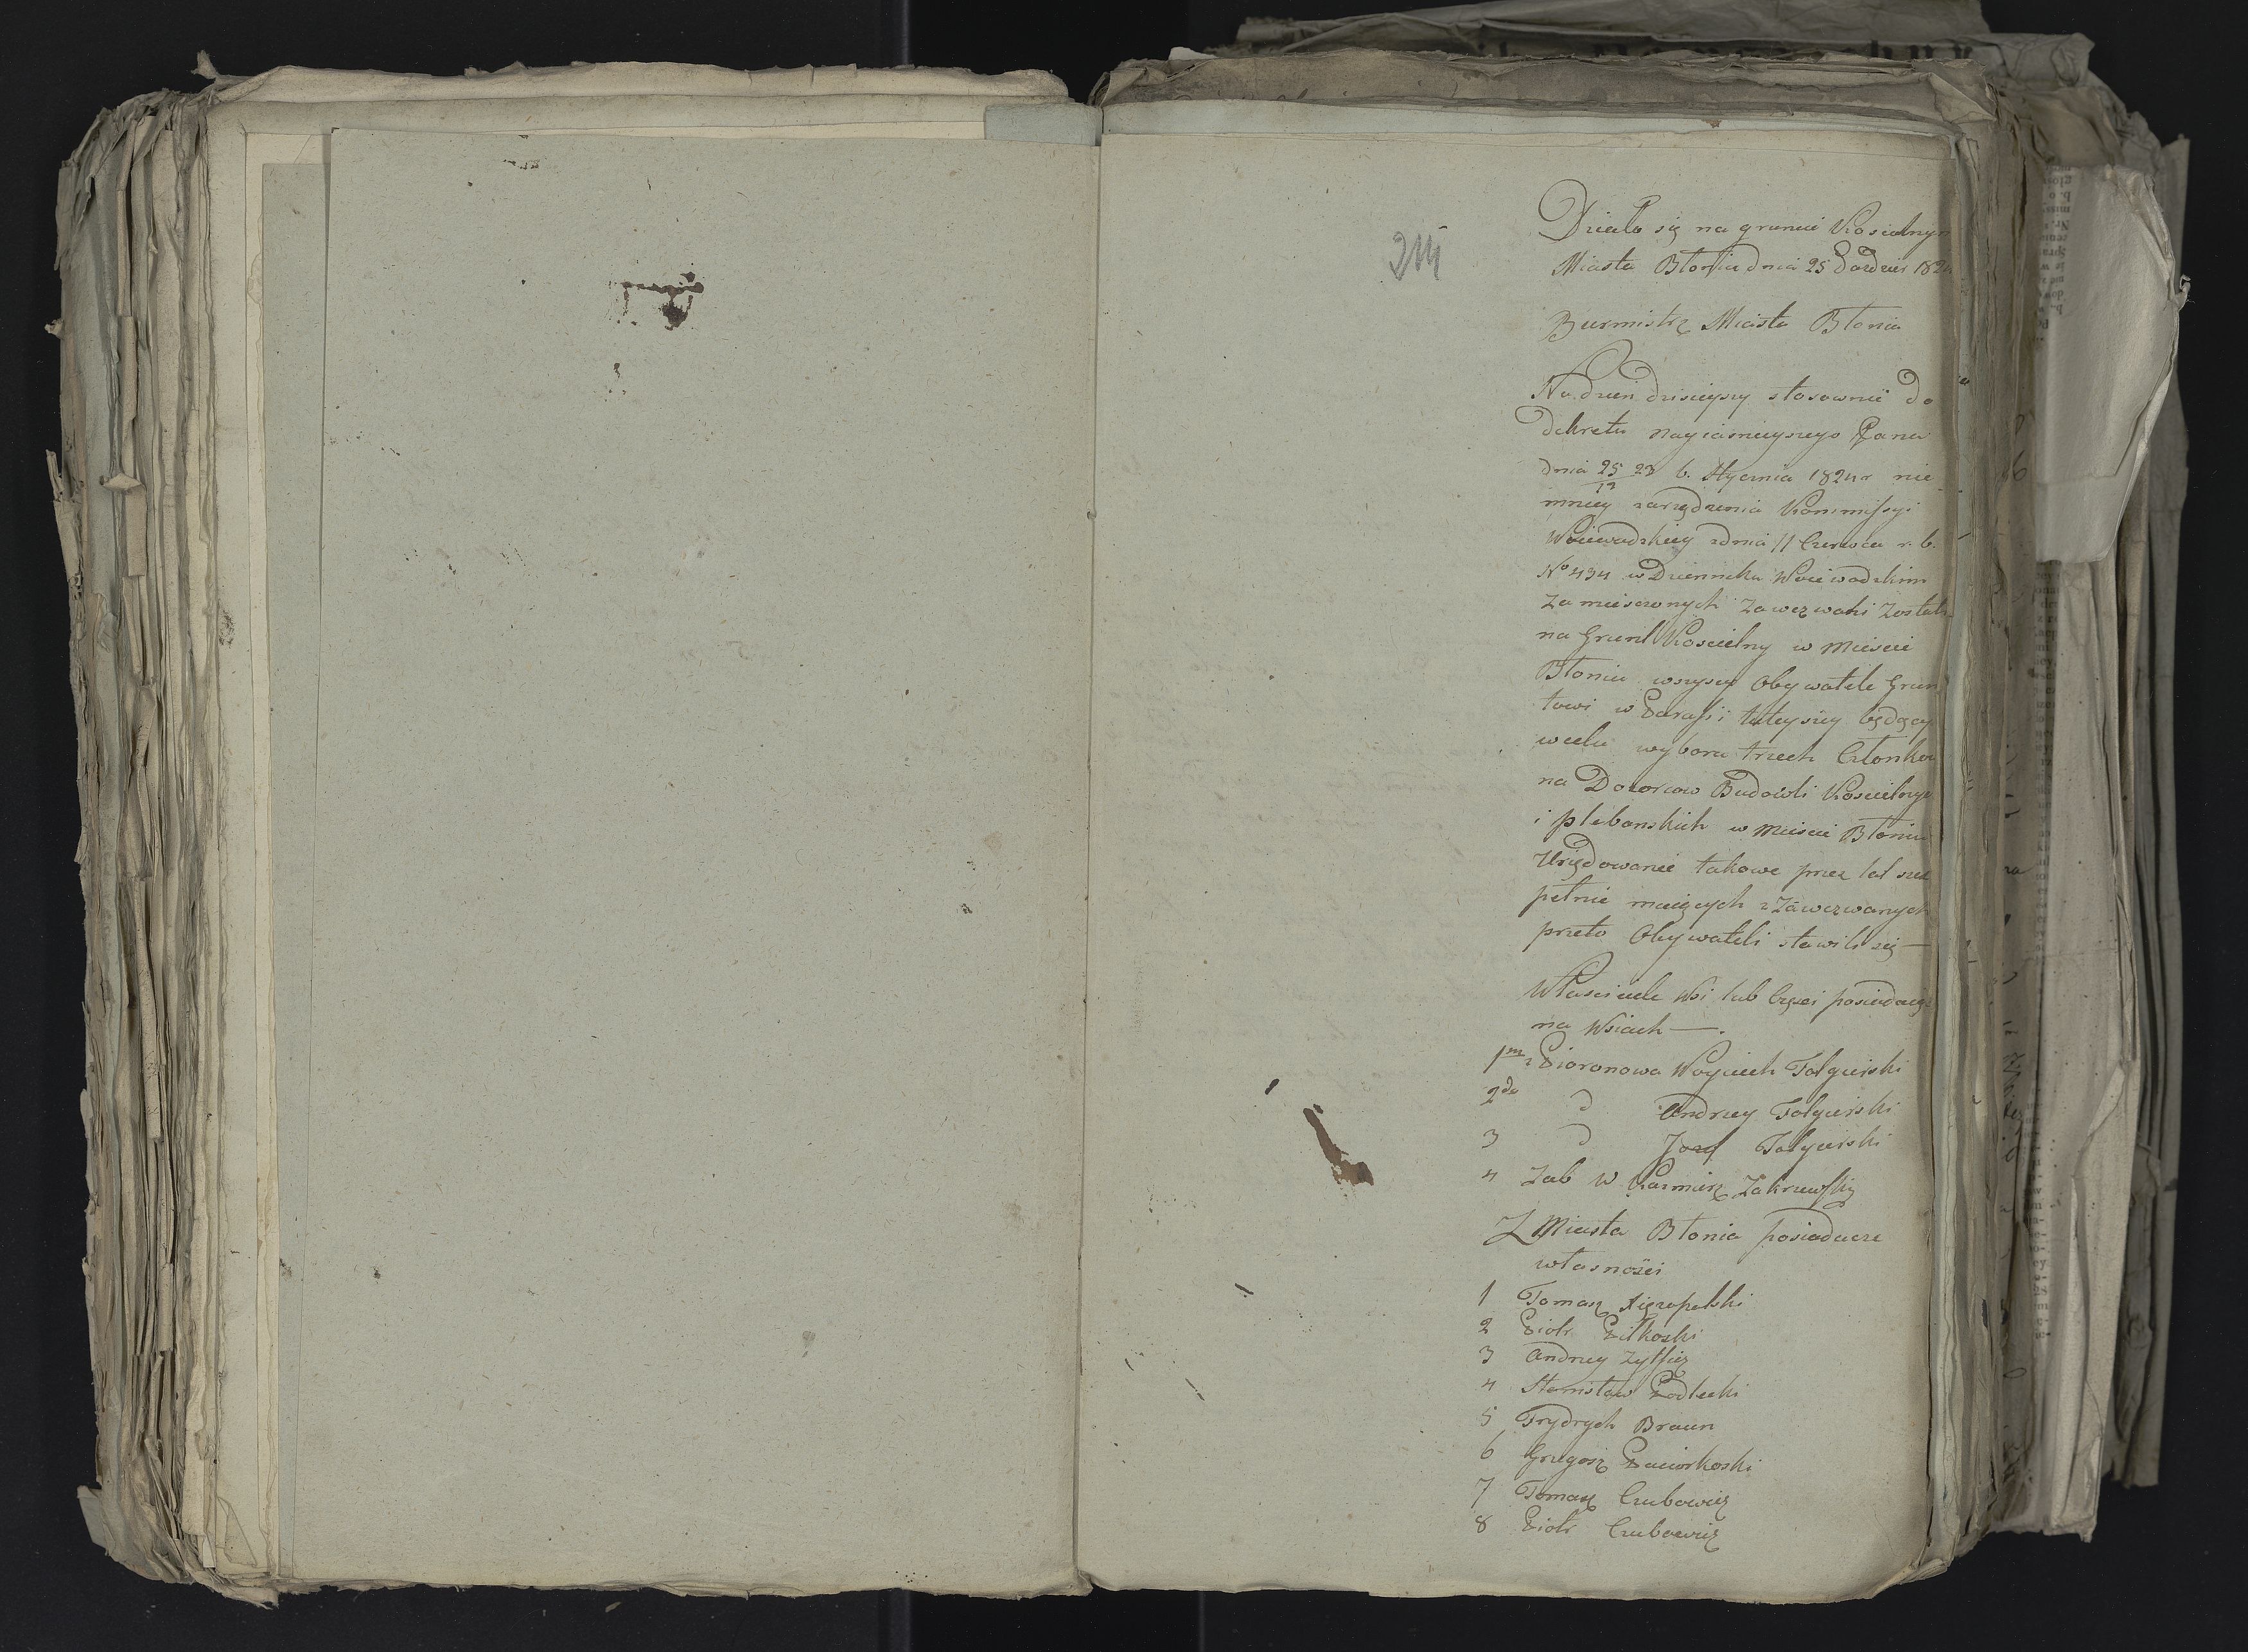 Działo się na gruncie Koscielnym
Miasta Błonia dnia 25 Pazdzier 182
Burmistrz Miasta Błonia
Na dzien dzisieyszy stosownie do
dekretu Nayiasnieyszego Pana
dnia 25 b. Stycznia 1824 r nie
mniey zarządzenia Kommissyi
Woiewodzkiey zdnia 11 Czerwca r. b.
No 434 w Dzienniku Woiewodzkim
Zamieszczonych Zawezwani Zostali
na Grunt Koscielny w Miescie
Błoniu wszyscy Obywatele Grun
towi w Parafii tuteyszey będący
wcelu wyboru trzech Członkow
na Dozorcow Budowli Koscielnych
i plebanskich w Miescie Błoniu
Urzędowanie takowe przez lat
pełnic maiących z Zawezwanych
przeto Obywateli stawili się —
Własciciele Wsi lub Częsci posiadaią
na Wsiach —.
1mo z Pioronowa Woyciech Falgierski
2do d Andrzey Falgierski
3 d Jozef Falgierski
4 Kazmierz Zakrzewski
Z Miasta Błonia posiadacze
własnosci
1 Tomasz
2 Piotr Pilkoski
3 Andrzey
4 Stanisław Podlecki
5 Frydrych Braun
6 Grzegorz Paciorkoski
7 Tomasz Czubowicz
8 Piotr Czubowicz